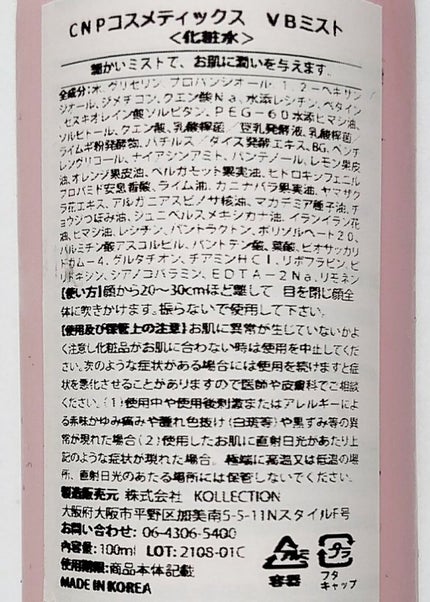 CNPコスメティックス VBミスト
<化粧水>
細かいミストで、お肌に潤いを与えます。
全成分:水、グリセリン、プロパンジオール、1,2-ヘキサン
ジオール、ジメチコン、クエン酸Na、水添レシチン、ベタイン
セスキオレイン酸ソルビタン、PEG-60水添ヒマシ油、
ソルビトール、クエン酸、乳酸桿菌/豆乳発酵液、乳酸桿菌/
ライムギ粉発酵物、バチルス/ダイズ発酵エキス、BG、ペンチ
レングリコール、ナイアシンアミド、パンテノール、レモン果皮
油、オレンジ果皮油、ベルガモット果実油、ヒドロキシフェニル
プロパミド安息香酸、ライム油、ガニナバラ果実油、ヤマザク
ラ花エキス、アルガニアスピノサ核油、マカデミア種子油、チ
ョウジつぼみ油、ジュニペルスメキシカナ油、イランイラン花
油、ヒマシ油、レシチン、パントラクトン、ポリソルベート20、
パルミチン酸アスコルビル、パントテン酸、葉酸、ビオサッカリ
ドガム-4、グルタチオン、チアミンHCl、リボフラビン、ピ
リドキシン、シアノコバラミン、EDTA-2Na、リモネン
【使い方】顔から20~30cmほど離して 目を閉じ顔全
体に吹きかけます。振らないで使用して下さい。
【使用及び保管上の注意】お肌に異常が生じていないかよ
く注意し化粧品がお肌に合わない時は使用を中止してくだ
さい。次のような症状がある場合には使用を続けますと症
状を悪化させることがありますので医師や皮膚科でご相談
ください。(1)使用中や使用後刺激またはアレルギーによ
る赤味かゆみ痛みや腫れ色抜け(白斑等)や黒ずみ等の異
常が現れた場合(2)使用したお肌に直射日光があたり上
記のような症状が現れた場合。極端に高温又は低温の場
所、直射日光のあたる場所には保管しないでください。
製造販売元 株式会社 KOLLECTION
大阪府大阪市平野区加美南5-5-11NスタイルF号
お問い合わせ: 06-4306-5400
内容量:100ml LOT: 2108-01C
使用期限:商品本体記載
MADE IN KOREA
アルミ
容器
プラ
フタ
キャップ